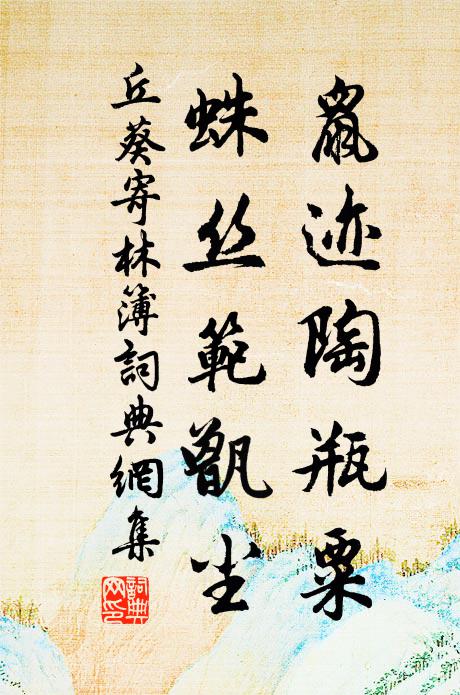 鼠迹陶瓶粟
蛛丝範甑尘
丘葵寄林簿詞典網集
詞典网印